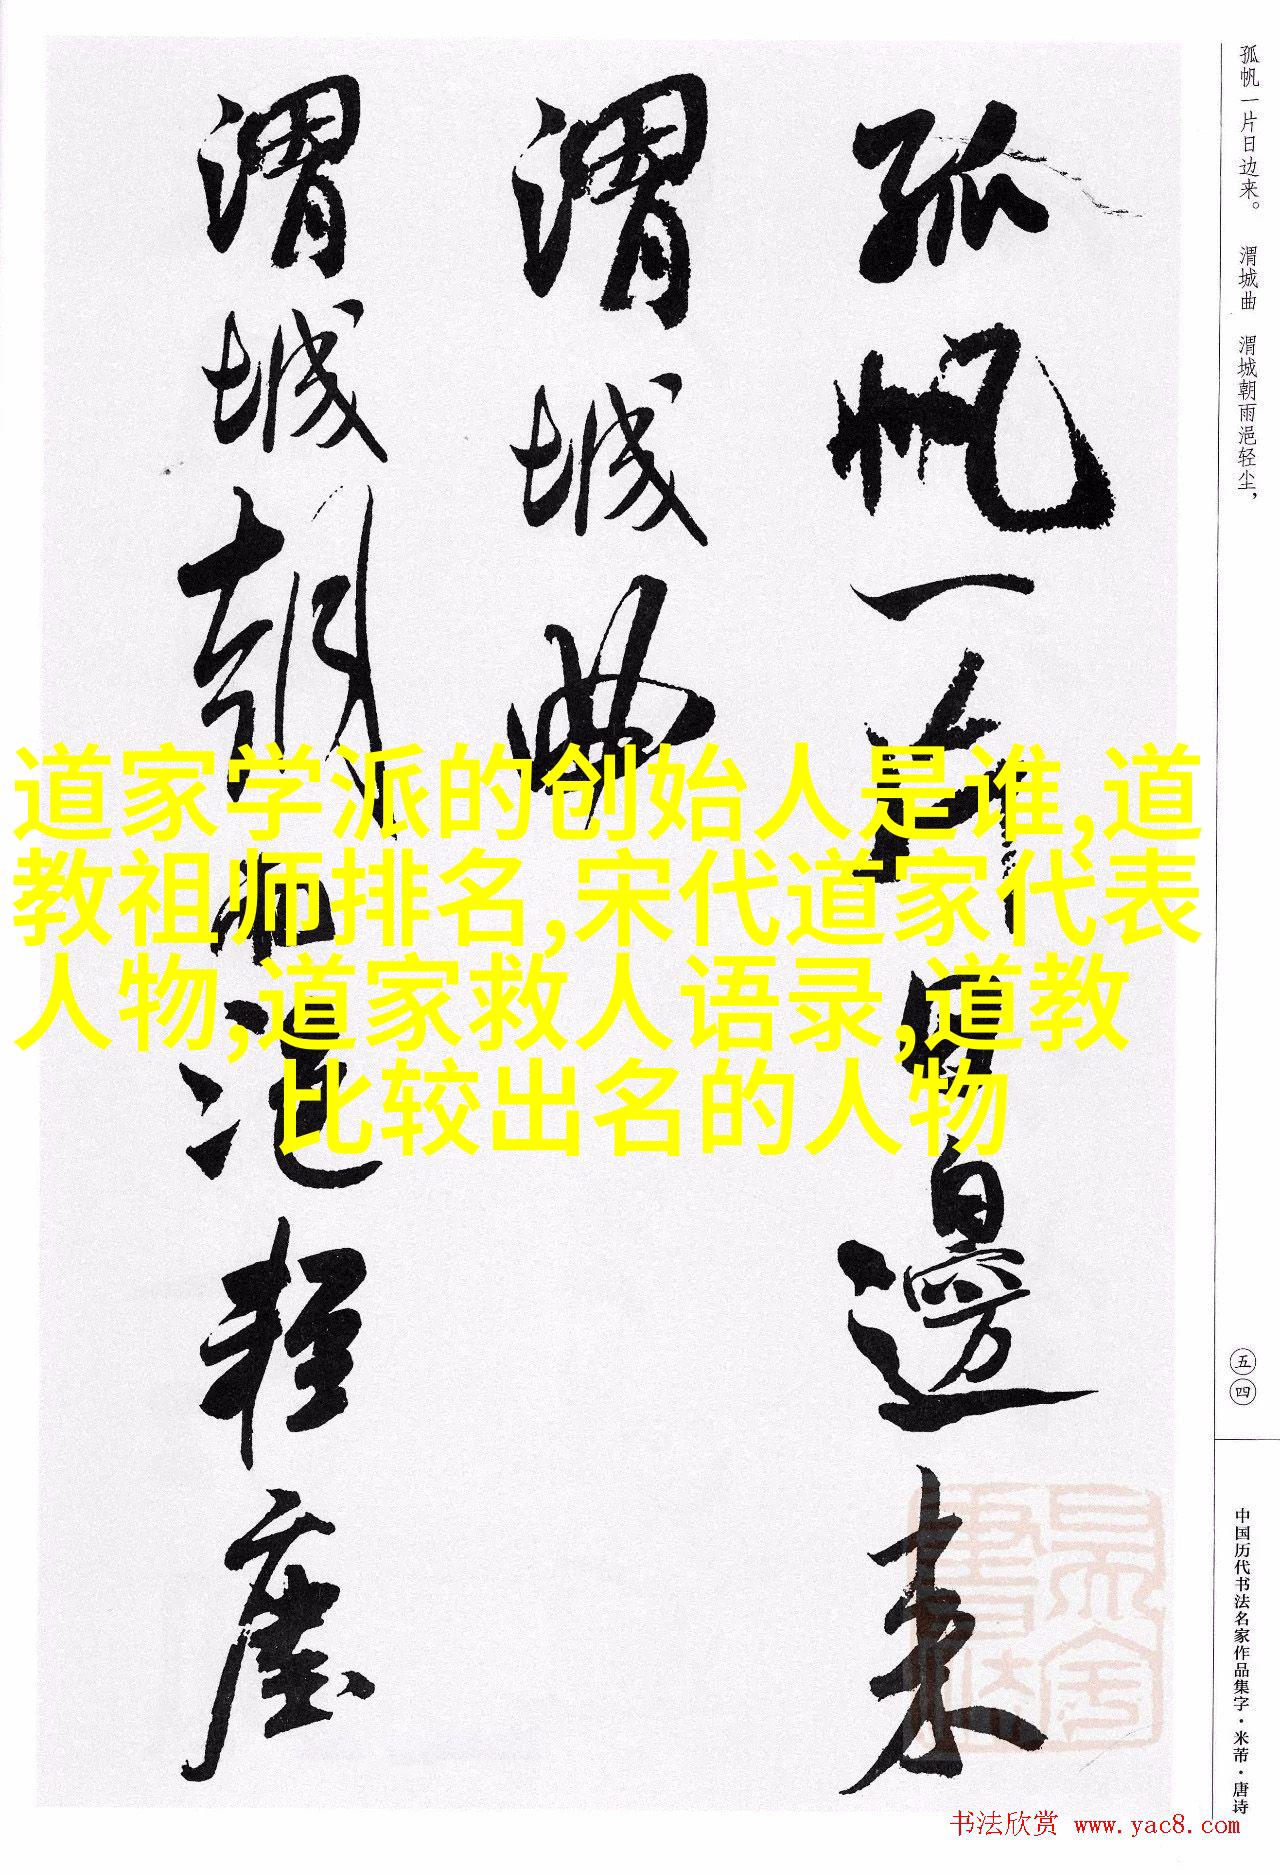 孤帆一片日边来。 渭城曲 渭城朝雨浥轻尘，
孤帆一片日邊来
渭城曲
渭城朝雨浥輕塵
道家学派的创始人是谁,道
教祖师排名,宋代道家代表
人物,道家救人语录,道教
比较出名的人物
五四
中国历代书法名家作品集字·米芾·唐诗
书法欣赏 www.yac8.com